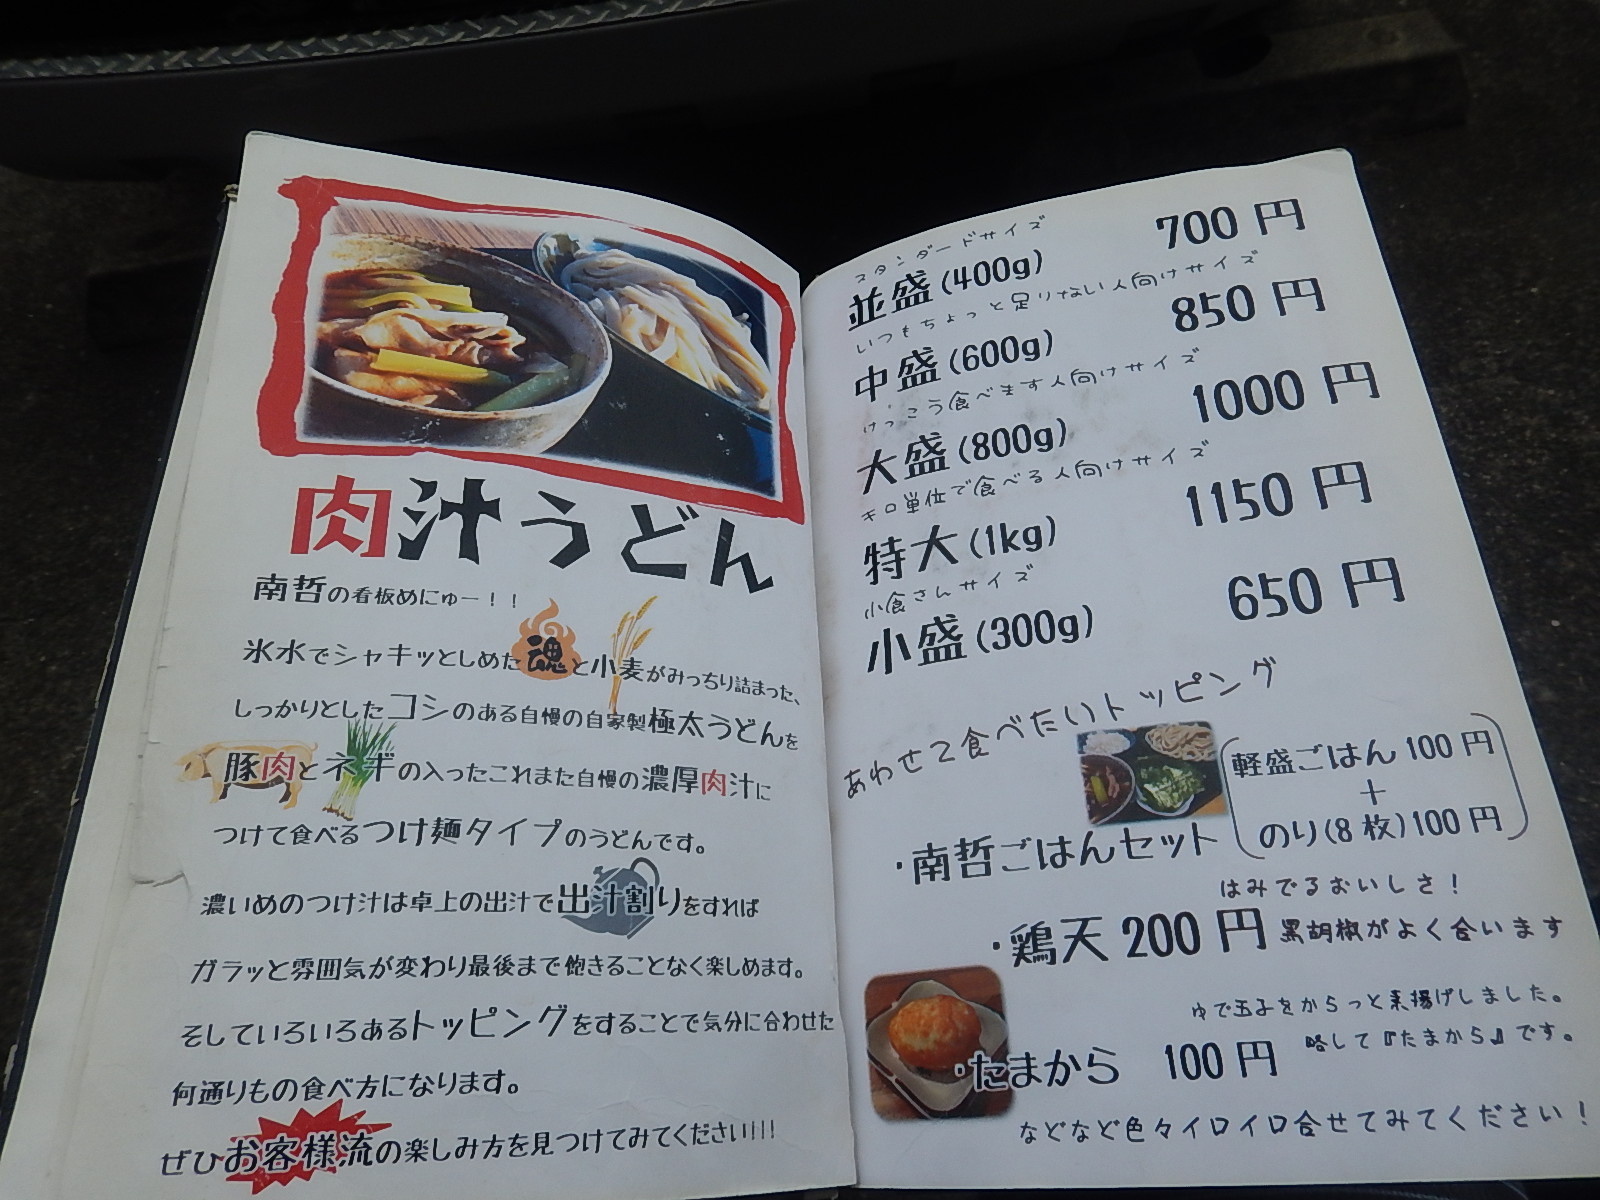 肉汁うどん
南哲の看板めにゅー！！
氷水でシャキッとしめた魂と小麦がみっちり詰まった、
しっかりとしたコシのある自慢の自家製極太うどんを
豚肉とネギの入ったこれまた自慢の濃厚肉汁に
つけて食べるつけ麺タイプのうどんです。
濃いめのつけ汁は卓上の出汁で出汁割りをすれば
ガラッと雰囲気が変わり最後まで飽きることなく楽しめます。
そしていろいろあるトッピングをすることで気分に合わせた
何通りもの食べ方になります。
ぜひお客様流の楽しみ方を見つけてみてください!!!
スタンダードサイズ
並盛(400g) 700円
いつもちょっと足りない人向けサイズ
中盛(600g) 850円
けっこう食べます人向けサイズ
大盛(800g) 1000円
キロ単位で食べる人向けサイズ
特大(1kg) 1150円
小食さんサイズ
小盛(300g) 650円
あわせて食べたいトッピング
・南哲ごはんセット
軽盛ごはん100円
+
のり(8枚)100円
はみでるおいしさ！
・鶏天200円 黒胡椒がよく合います
ゆで玉子をからっと素揚げしました。
略して『たまから』です。
・たまから 100円
などなど色々イロイロ合せてみてください！